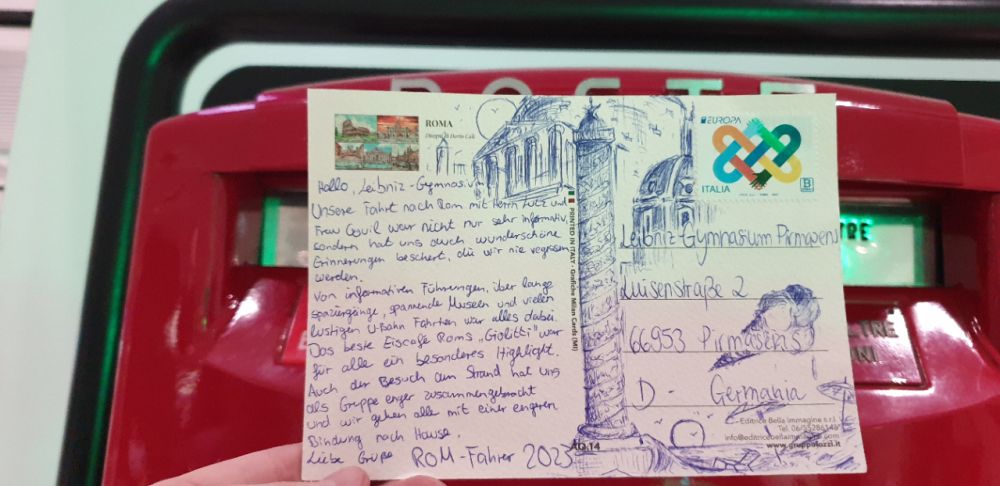 POSTE
ROMA
Disegni di Dario Cali
EUROPA
ITALIA
B
Hallo, Leibniz-Gymnasium
Unsere Fahrt nach Rom mit Herrn Lutz und
Frau war nicht nur sehr informativ,
sondern hat uns auch wunderschöne
Erinnerungen beschert, die wir nie vegessen
werden.
Von informativen Führungen, über lange
spaziergänge, spannende Museen und vielen
lustigen U-bahn Fahrten war alles dabei.
Das beste Eiscafe Roms „Giolitti" war
für alle ein besonderes Highlight.
Auch der Besuch am Strand hat uns
als Gruppe enger zusammengebracht
und wir gehen alle mit einer engeren
Bindung nach Hause.
Liebe Grüße ROM-Fahrer 2023
PRINTED IN ITALY - Grafiche Milan Cards (MI)
Leibniz-Gymnasium Pirmasens
Luisenstraße 2
66953 Pirmasens
D - Germania
Editrice Bella Immagine s.r.l.
Tel. 06/55286148
www.gruppolozzi.it